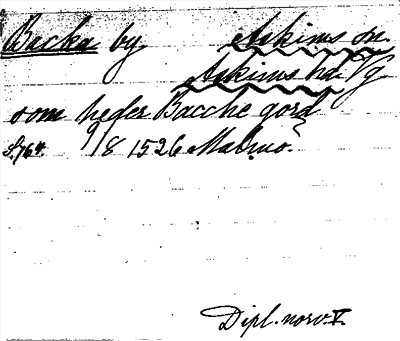 Backa by Askims sn
Askims hd Vg
som heder Bacche gord
S. 764. 9/8 1526 Malmø.
Dipl. norv. V.